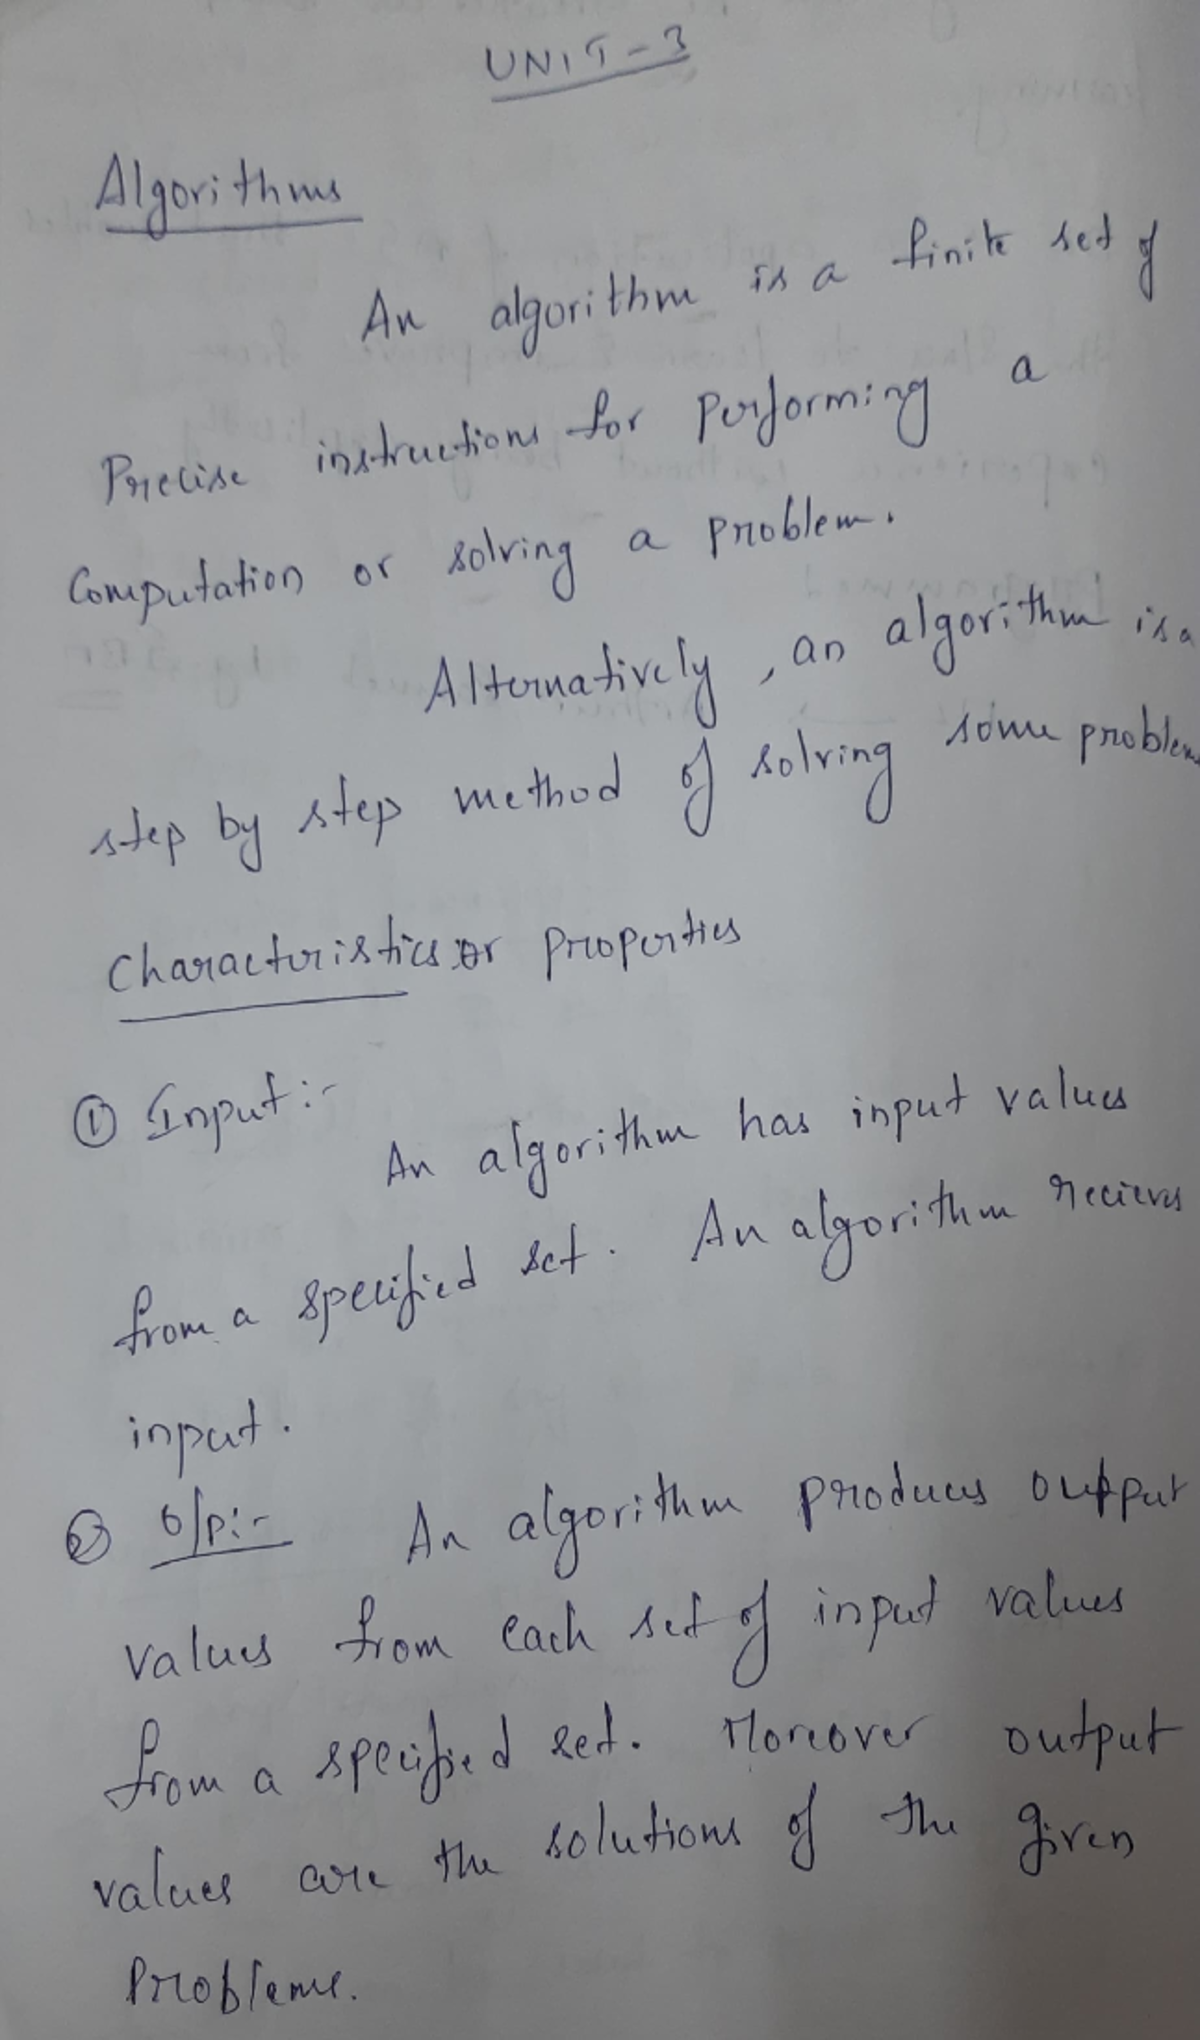 UNIT-3
Algorithms
An algorithm is a finite set of
Precise instructions for Performing a
Computation or solving a problem.
Alternatively, an algorithm is a
step by step method of solving some problem
Characteristics or properties
① Input:-
An algorithm has input values
from a specified set. An algorithm recieves
input.
② O/p:- An algorithm produces output
values from each set of input values
from a specified set. Moreover output
values are the solutions of the given
Problems.